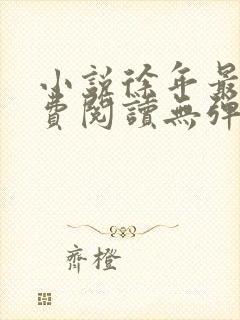 小說徐年最
費閱讀無彈
齊橙